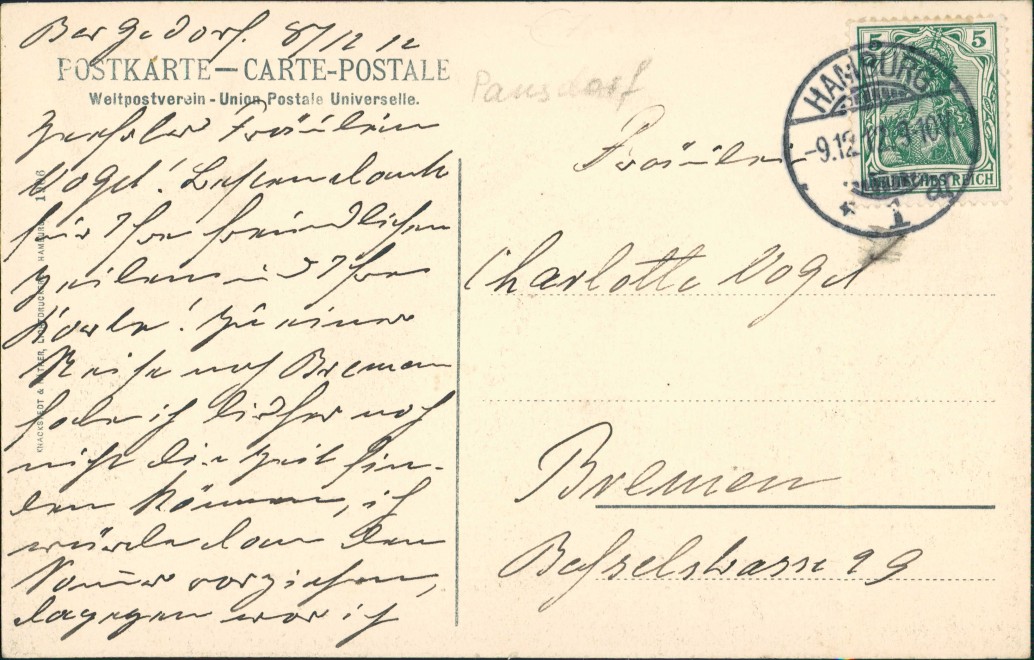 Bergedorf. 8/12 12
POSTKARTE — CARTE-POSTALE
Weltpostverein - Union Postale Universelle.
Pansdorf
Fräulein
Vogel! Besten Dank
für Ihre freundlichen
Zeilen und Ihre
Karte! Zu einer
Reise nach Bremen
habe ich bisher noch
nicht die Zeit fin-
den können, ich
würde dann den
Sommer vorziehen,
dagegen war ich
KNACKSTEDT & NÄTHER, LICHTDRUCKEREI, HAMBURG
Fräulein
Charlotte Vogel
Bremen
Besselstrasse 29
HAMBURG
-9.12.12. 9-10V.
* 1 ap
5 5
DEUTSCHES REICH